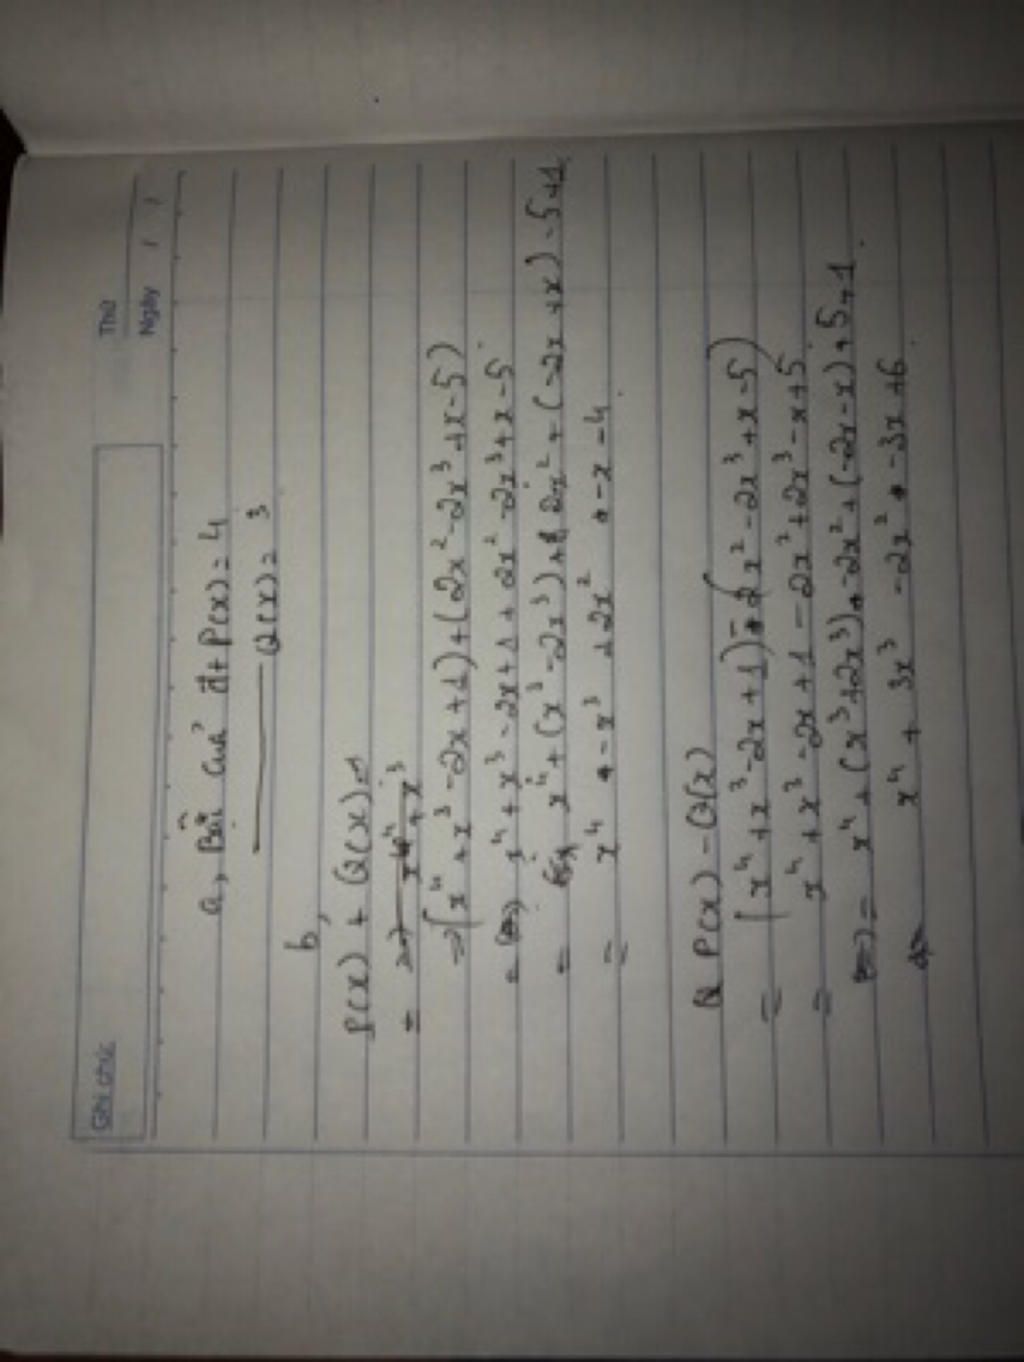 Ghi chú
Thứ
Ngày / /
a, Bậc của đt P(x) = 4
Q(x) = 3
b,
P(x) + Q(x) =
= x⁴ + x³
= (x⁴ + x³ - 2x + 1) + (2x² - 2x³ + x - 5)
= x⁴ + x³ - 2x + 1 + 2x² - 2x³ + x - 5
= x⁴ + (x³ - 2x³) + 2x² + (-2x + x) - 5 + 1
= x⁴ - x³ + 2x² - x - 4
P(x) - Q(x)
= (x⁴ + x³ - 2x + 1) - (2x² - 2x³ + x - 5)
= x⁴ + x³ - 2x + 1 - 2x² + 2x³ - x + 5
= x⁴ + (x³ + 2x³) - 2x² + (-2x - x) + 5 + 1
x⁴ + 3x³ - 2x² - 3x + 6